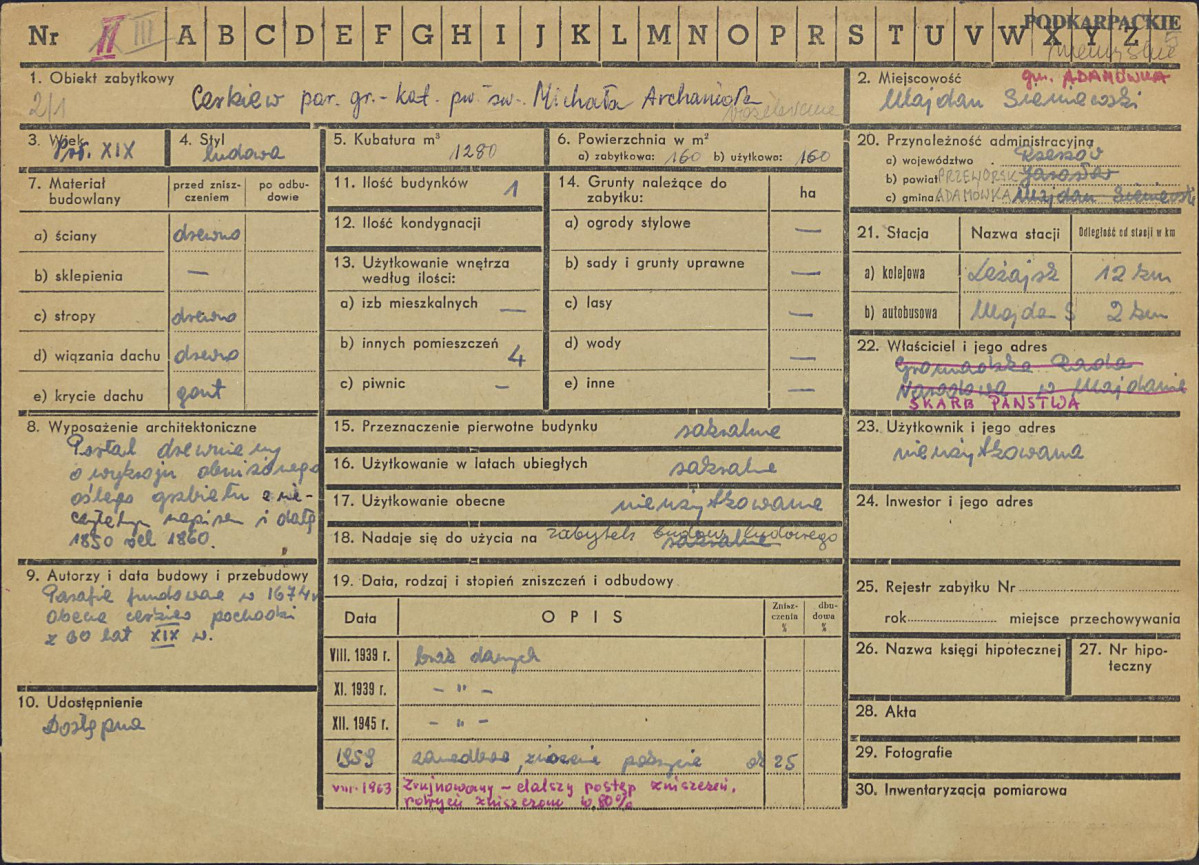 Nr II III A B C D E F G H I J K L M N O P R S T U V W X Y Z
PODKARPACKIE
1. Obiekt zabytkowy
2/1
Cerkiew par. gr.-kat. pw. św. Michała Archanioła
2. Miejscowość gm. ADAMÓWKA
Majdan Sieniawski
3. Wiek
XIX
4. Styl
ludowa
5. Kubatura m³
1280
6. Powierzchnia w m²
a) zabytkowa: 160 b) użytkowa: 160
7. Materiał budowlany
przed zniszczeniem
po odbudowie
a) ściany drewno
b) sklepienia —
c) stropy drewno
d) wiązania dachu drewno
e) krycie dachu gont
8. Wyposażenie architektoniczne
Portal drewniany
o wykroju obniżonego
oślego grzbietu z nie-
czytelnym napisem i datą
1850 vel 1860.
9. Autorzy i data budowy i przebudowy
Parafia fundowana w 1674 r
obecna cerkiew pochodzi
z 60 lat XIX w.
10. Udostępnienie
Dostępna
11. Ilość budynków 1
12. Ilość kondygnacji
13. Użytkowanie wnętrza
według ilości:
a) izb mieszkalnych —
b) innych pomieszczeń 4
c) piwnic —
14. Grunty należące do
zabytku:
ha
a) ogrody stylowe —
b) sady i grunty uprawne —
c) lasy —
d) wody —
e) inne —
15. Przeznaczenie pierwotne budynku sakralne
16. Użytkowanie w latach ubiegłych sakralne
17. Użytkowanie obecne nieużytkowane
18. Nadaje się do użycia na zabytek budown. ludowego
sakralne
19. Data, rodzaj i stopień zniszczeń i odbudowy
Data
O P I S
Znisz-
czenia
%
dbu-
dowa
%
VIII. 1939 r. brak danych
XI. 1939 r. — " —
XII. 1945 r. — " —
1959 25
VIII-1963 Zrujnowany – dalszy postęp zniszczeń,
80%
20. Przynależność administracyjna
a) województwo Rzeszów
b) powiat PRZEWORSK Jarosław
c) gmina ADAMÓWKA Majdan Sieniawski
21. Stacja
Nazwa stacji
Odległość od stacji w km
a) kolejowa Leżajsk 12 km
b) autobusowa Majdan S 2 km
22. Właściciel i jego adres
Gromadzka Rada
Narodowa w Majdanie
SKARB PAŃSTWA
23. Użytkownik i jego adres
nieużytkowana
24. Inwestor i jego adres
25. Rejestr zabytku Nr
rok miejsce przechowywania
26. Nazwa księgi hipotecznej
27. Nr hipo-
teczny
28. Akta
29. Fotografie
30. Inwentaryzacja pomiarowa